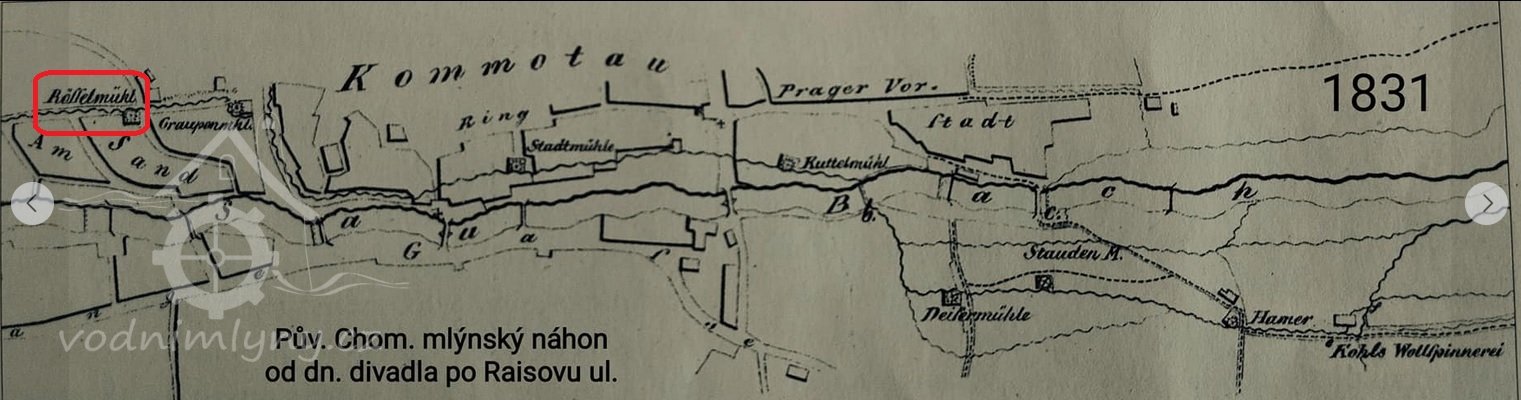 Kommotau
1831
Röſſelmühl
Graupenmhl.
Am
Sand
Ring
Stadtmühle
Prager Vor.
ſtadt
Kuttelmühl
Sau
Bach
Stauden M.
Hamer
Kohls Wollſpinnerei
vodnimlyny.cz
Pův. Chom. mlýnský náhon
od dn. divadla po Raisovu ul.